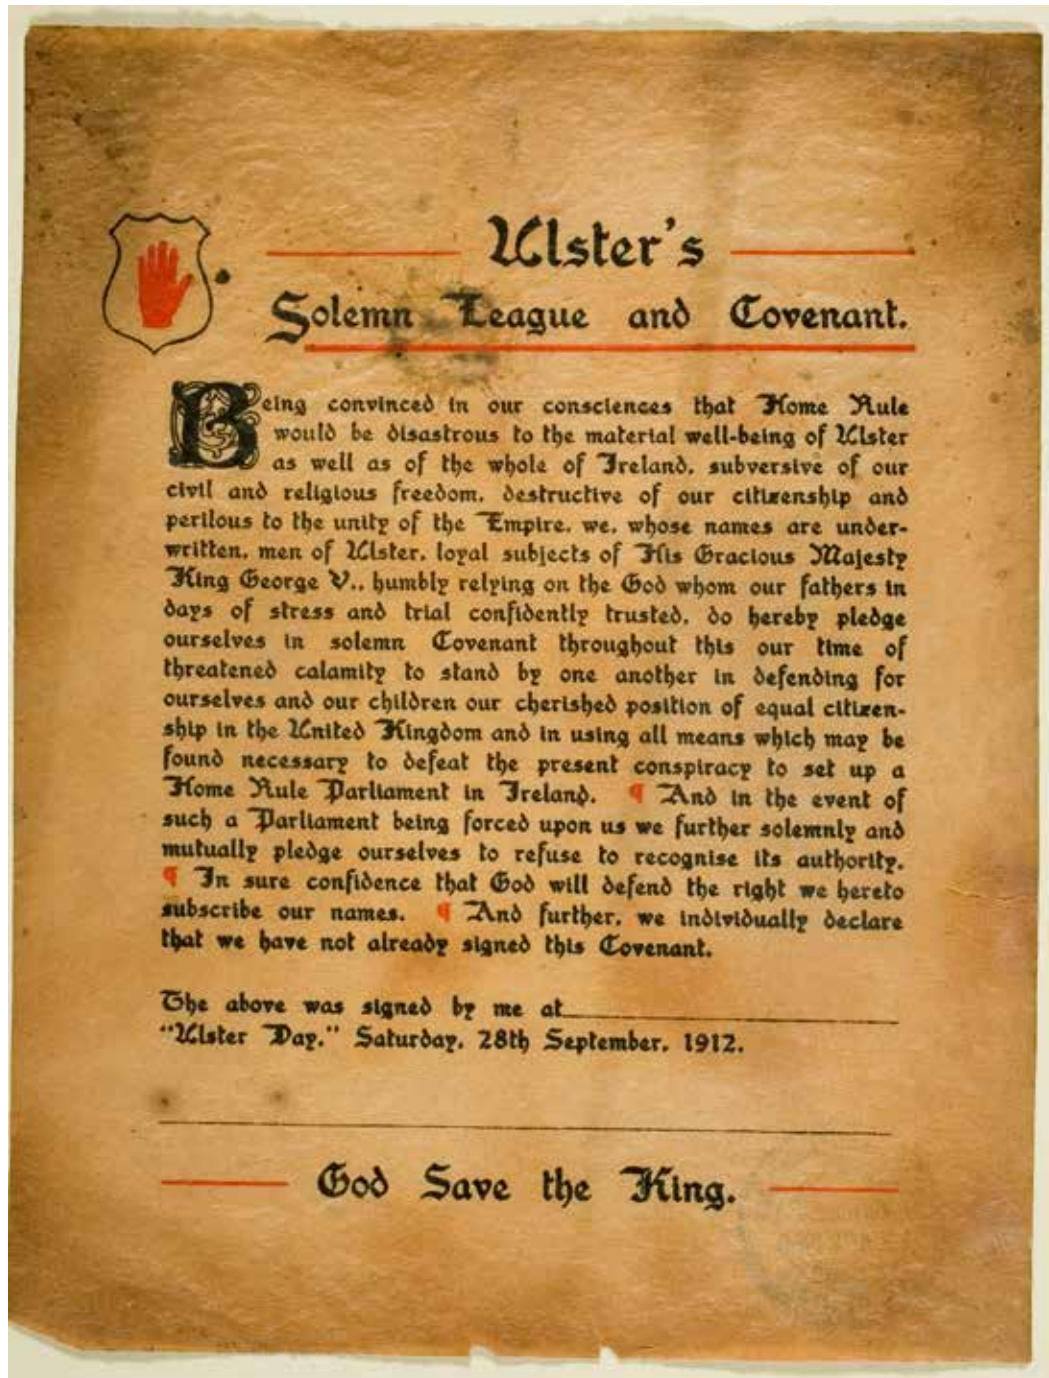 Ulster's
Solemn League and Covenant.
Being convinced in our consciences that Home Rule
would be disastrous to the material well-being of Ulster
as well as of the whole of Ireland, subversive of our
civil and religious freedom, destructive of our citizenship and
perilous to the unity of the Empire, we, whose names are under-
written, men of Ulster, loyal subjects of His Gracious Majesty
King George V., humbly relying on the God whom our fathers in
days of stress and trial confidently trusted, do hereby pledge
ourselves in solemn Covenant throughout this our time of
threatened calamity to stand by one another in defending for
ourselves and our children our cherished position of equal citizen-
ship in the United Kingdom and in using all means which may be
found necessary to defeat the present conspiracy to set up a
Home Rule Parliament in Ireland. ¶ And in the event of
such a Parliament being forced upon us we further solemnly and
mutually pledge ourselves to refuse to recognise its authority.
¶ In sure confidence that God will defend the right we hereto
subscribe our names. ¶ And further, we individually declare
that we have not already signed this Covenant.
The above was signed by me at
"Ulster Day," Saturday, 28th September, 1912.
God Save the King.